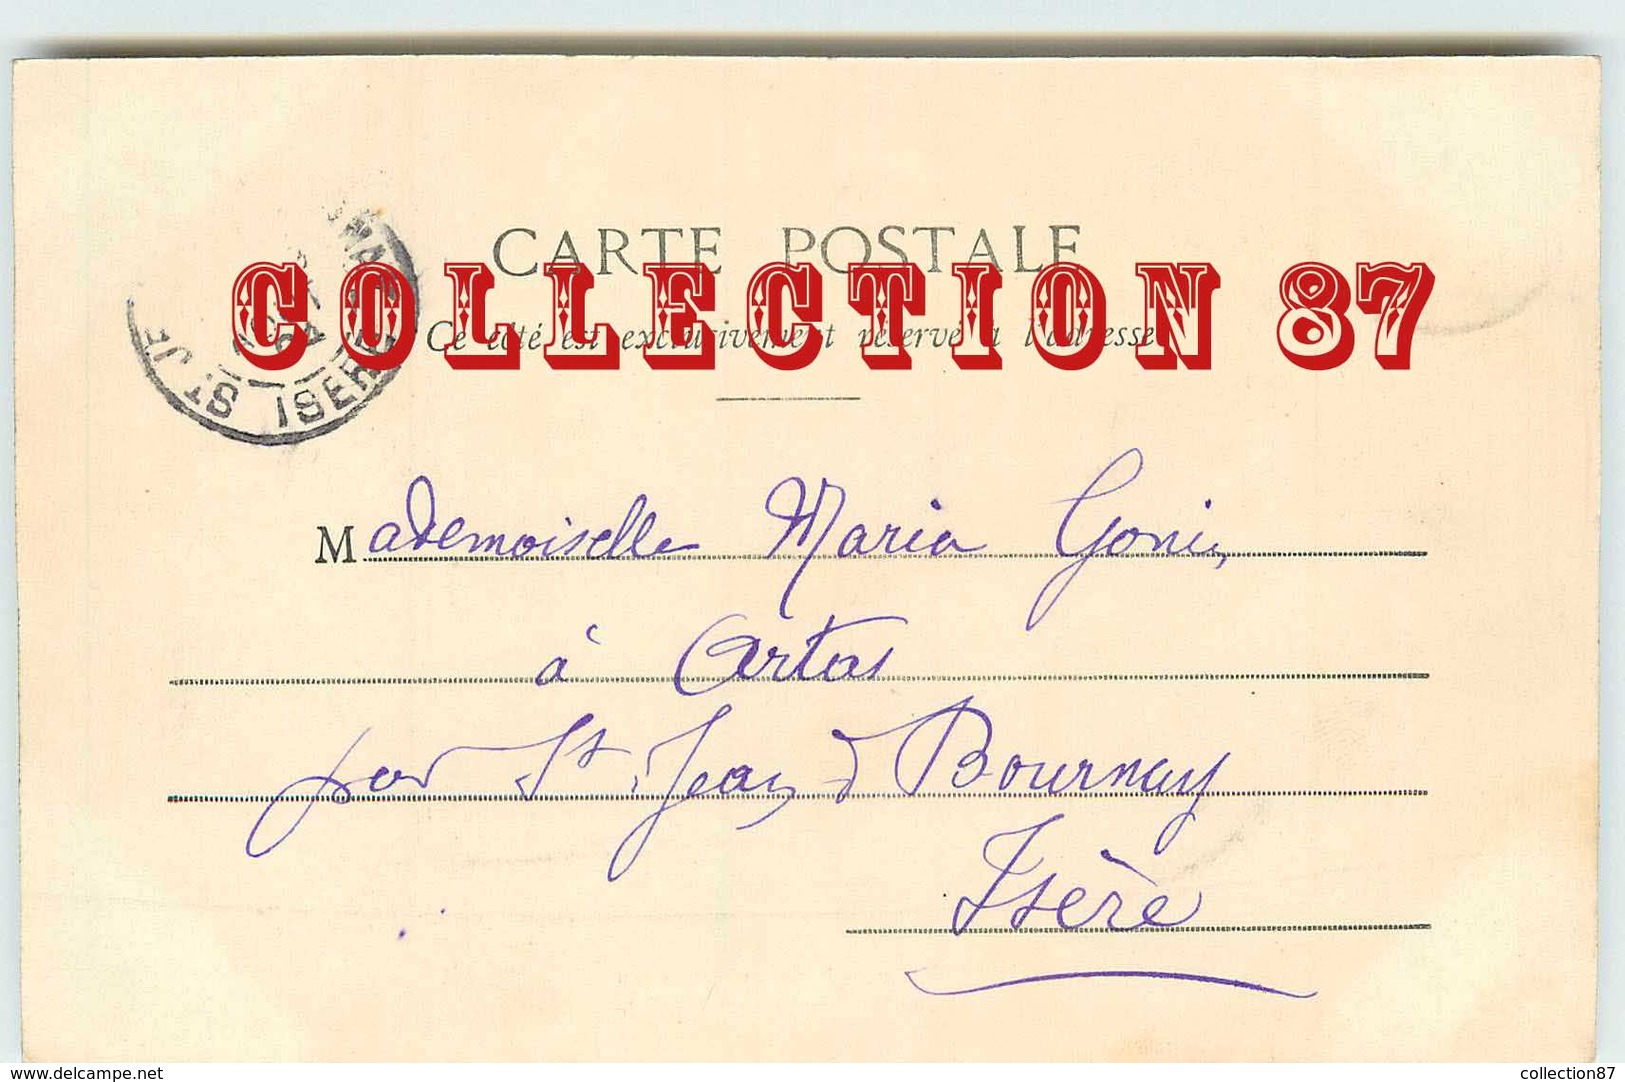 CARTE POSTALE
COLLECTION 87
Ce côté est exclusivement réservé à l'adresse
ST JE
ISERE
Mademoiselle Maria Gonin
à Artas
par St Jean d Bournay
Isère
delcampe.net
collection87